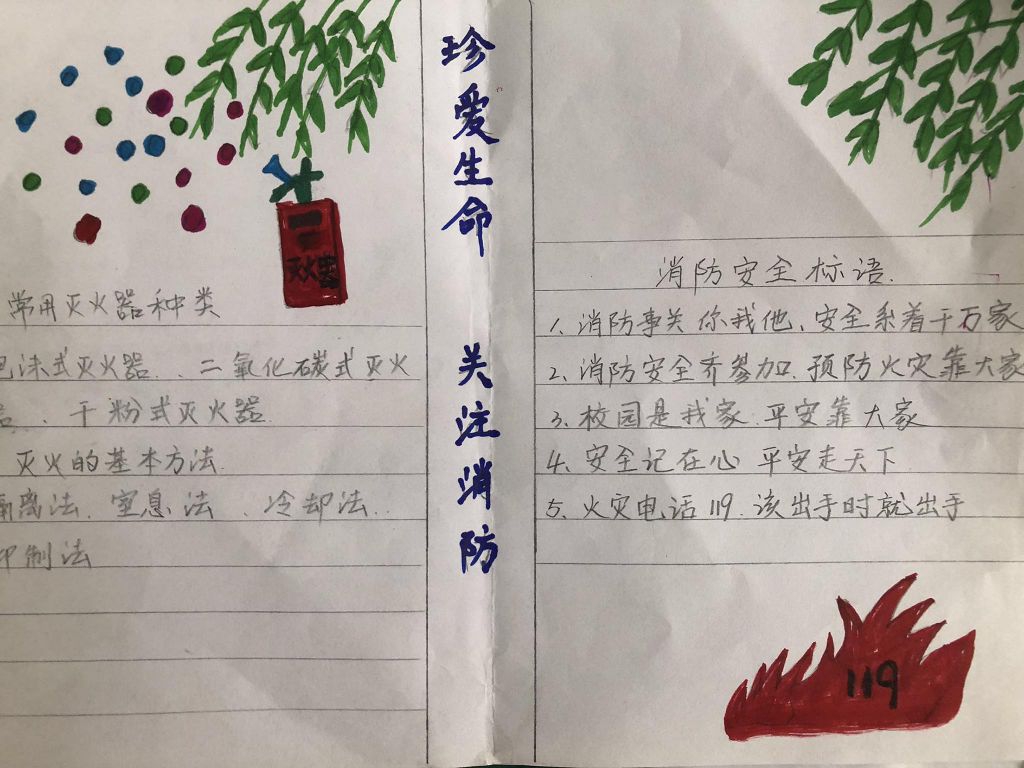 珍爱生命 关注消防
灭火器
常用灭火器种类
泡沫式灭火器、二氧化碳式灭火
器、干粉式灭火器
灭火的基本方法
隔离法、窒息法、冷却法、
抑制法
消防安全标语
1、消防事关你我他、安全系着千万家
2、消防安全齐参加、预防火灾靠大家
3、校园是我家 平安靠大家
4、安全记在心 平安走天下
5、火灾电话119 该出手时就出手
119